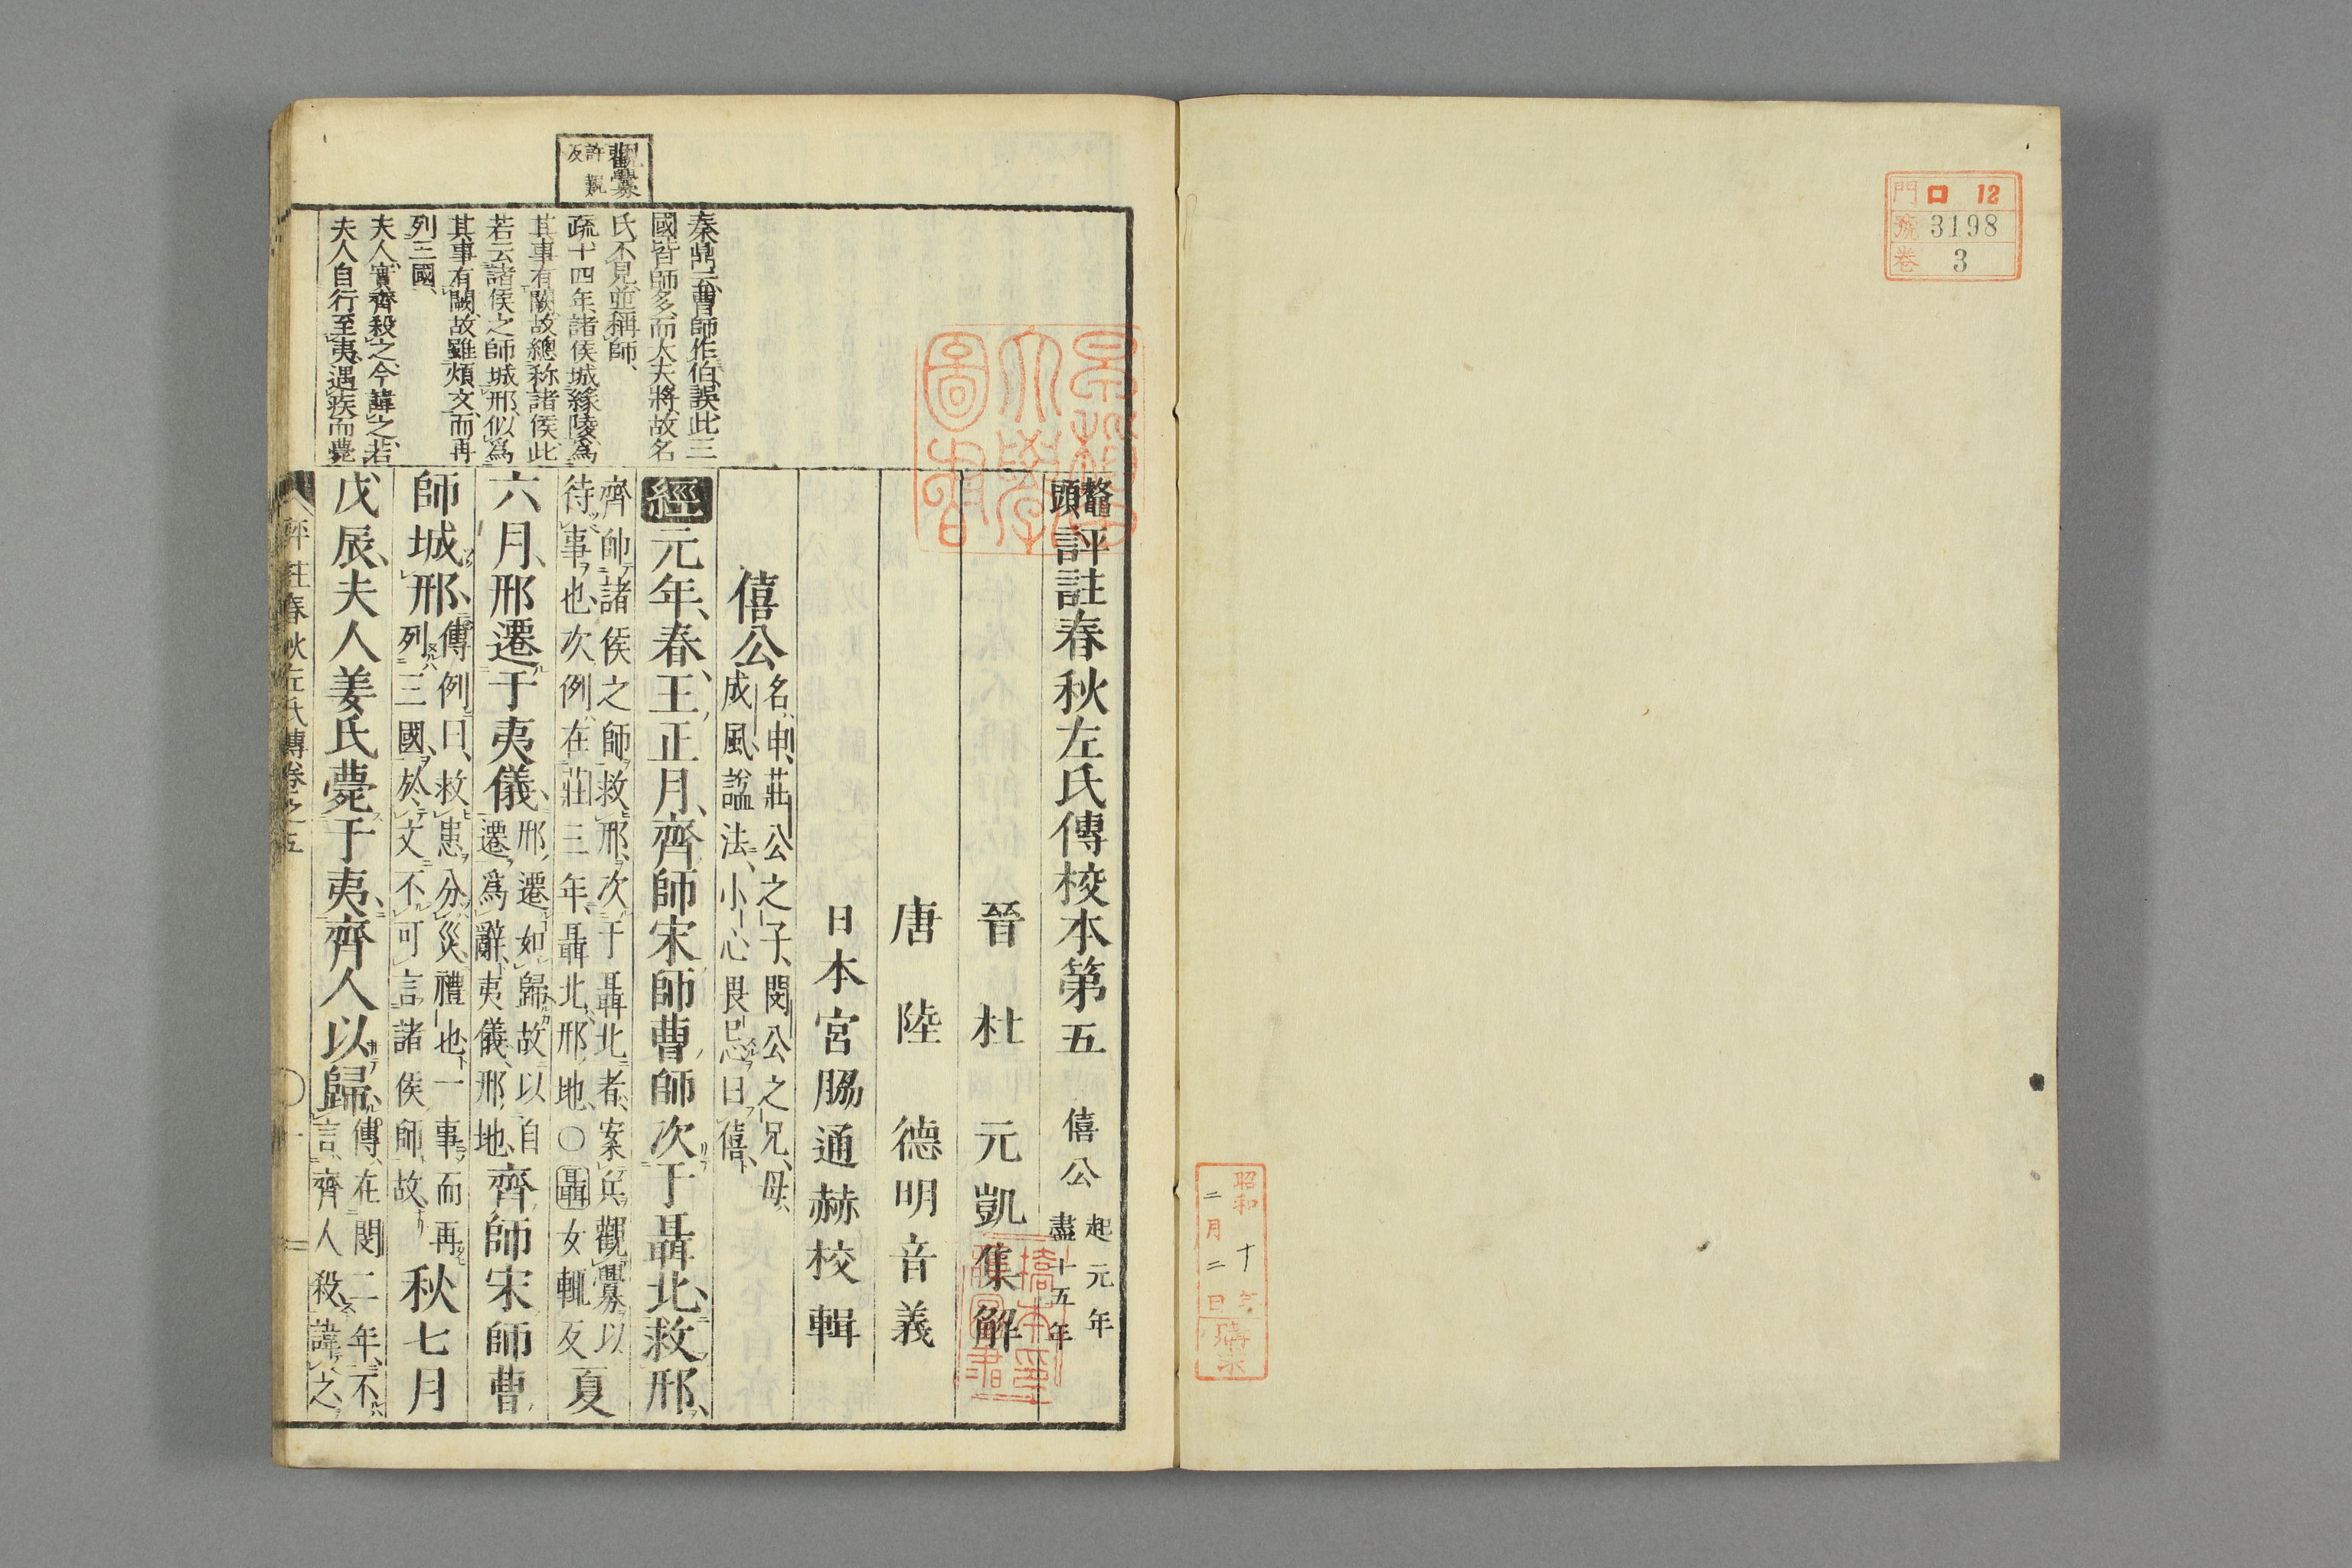 門 ロ 12
號 3198
卷 3
昭和十年
二月二日
購求
鼇頭評註春秋左氏傳校本第五 僖公 起元年盡十五年
晉 杜 元 凱 集 解
唐 陸 德 明 音 義
日本宮脇通赫校輯
僖公 名申、莊公之子、閔公之兄、母、成風、諡法、小心畏忌曰僖、
經元年、春、王正月、齊師宋師曹師次于聶北、救邢、
齊帥諸侯之師救邢、次于聶北者、案兵觀釁以
待事也、次例在莊三年、聶北、邢地、〇聶女輒反 夏
六月、邢遷于夷儀、邢遷如歸、故以自遷爲辭、夷儀、邢地、齊師宋師曹
師城邢、傳例曰、救患分災、禮也、一事而再列三國、於文不可言諸侯師故、秋七月
戊辰、夫人姜氏薨于夷、齊人以歸、傳在閔二年、不言齊人殺、諱之、
觀釁 許觀反
秦鼎云、曹師作伯、誤、此三
國皆師多、而大夫將、故名
氏不見、並稱師、
疏十四年、諸侯城緣陵、爲
其事有闕、故總称諸侯、此
若云諸侯之師城邢、似爲
其事有闕、故雖煩文、而再
列三國、
夫人實齊殺之、今諱之、若
夫人自行至夷、遇疾而薨
評註春秋左氏傳卷之五
〇 一